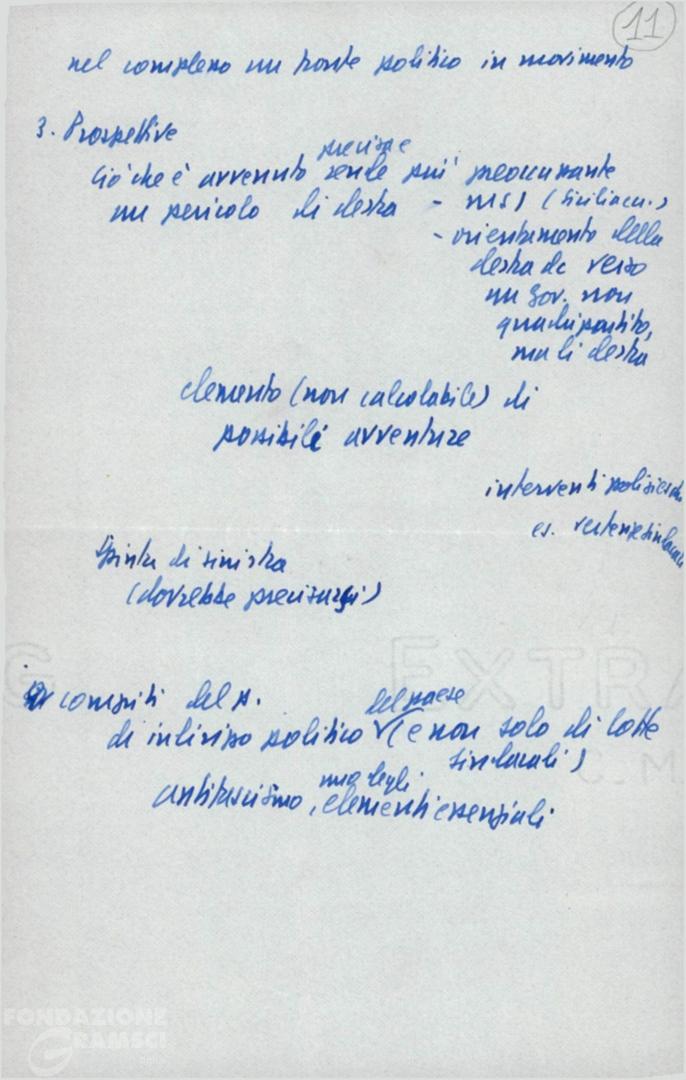 11
nel complesso un fronte politico in movimento
3. Prospettive
precisa e
Ciò che è avvenuto rende più preoccupante
un pericolo di destra - MSI (Siciliacc.)
- orientamento della
destra dc verso
un gov. non
quadripartito,
ma di destra
elemento (non calcolabile) di
possibili avventure
interventi polizieschi
es. vertenze sindacali
Spinta di sinistra
(dovrebbe precisarsi)
compiti del p.
del paese
di indirizzo politico (e non solo di lotte
sindacali)
uno degli
antifascismo, elementi essenziali
EXTRA
G
C.M.
FONDAZIONE
GRAMSCI